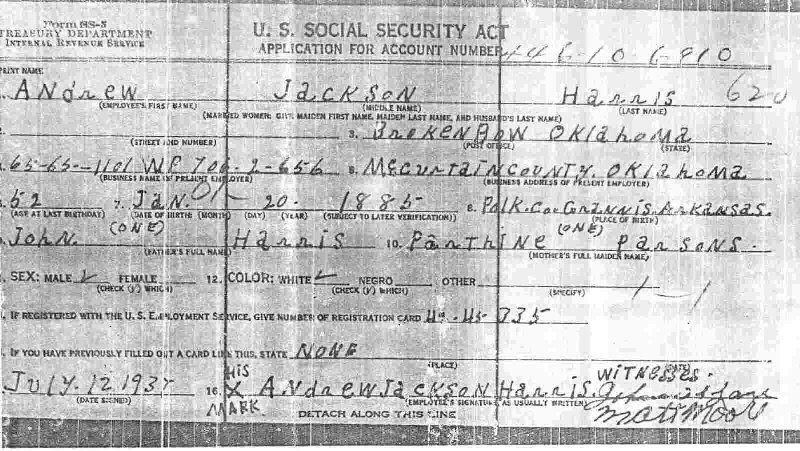 Form SS-5
TREASURY DEPARTMENT
INTERNAL REVENUE SERVICE
U. S. SOCIAL SECURITY ACT
APPLICATION FOR ACCOUNT NUMBER
PRINT NAME
ANdrew JACKSON HArris 620
(EMPLOYEE'S FIRST NAME) (MIDDLE NAME) (LAST NAME)
(MARRIED WOMEN: GIVE MAIDEN FIRST NAME, MAIDEN LAST NAME, AND HUSBAND'S LAST NAME)
3. BrokenBow OKlahoma
(STREET AND NUMBER) (POST OFFICE) (STATE)
65-65--1101 WP 706-2-656 McCurtain County. OKlahoma
(BUSINESS NAME OF PRESENT EMPLOYER) (BUSINESS ADDRESS OF PRESENT EMPLOYER)
52 7. JAN. 20. 1885 8. Polk. Co. Grannis. Arkansas.
(AGE AT LAST BIRTHDAY) (DATE OF BIRTH: (MONTH) (DAY) (YEAR) (SUBJECT TO LATER VERIFICATION)) (PLACE OF BIRTH)
John. (ONE) Harris 10. Parthine (ONE) Parsons.
(FATHER'S FULL NAME) (MOTHER'S FULL MAIDEN NAME)
SEX: MALE ✓ FEMALE 12. COLOR: WHITE ✓ NEGRO OTHER
(CHECK (√) WHICH) (CHECK (√) WHICH) (SPECIFY)
IF REGISTERED WITH THE U. S. EMPLOYMENT SERVICE, GIVE NUMBER OF REGISTRATION CARD 335
IF YOU HAVE PREVIOUSLY FILLED OUT A CARD LIKE THIS, STATE NONE
(PLACE)
July. 12 1937 16. HIS X MARK ANdrew JAckson Harris. WITNESSES.
(DATE SIGNED) (EMPLOYEE'S SIGNATURE, AS USUALLY WRITTEN)
DETACH ALONG THIS LINE